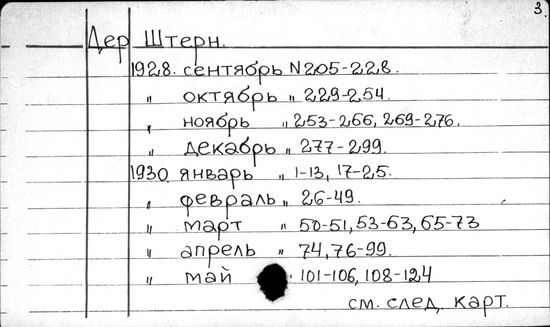 3.
Дер Штерн.
1928. сентябрь N 205-228.
" октябрь " 229-254.
" ноябрь " 253-266, 269-276.
" декабрь " 277-299.
1930. январь " 1-13, 17-25.
" февраль " 26-49.
" март " 50-51, 53-63, 65-73
" апрель " 74, 76-99.
" май " 101-106, 108-124
см. след. карт.